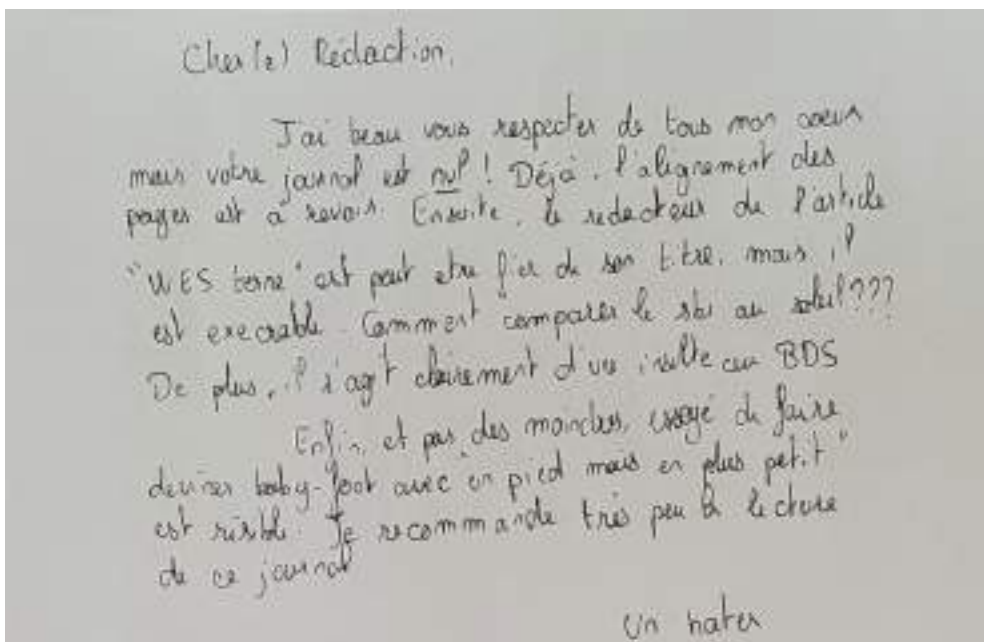 Cher(e) Rédaction,
J'ai beau vous respecter de tous mon coeur
mais votre journal est nul ! Déjà, l'alignement des
pages est à revoir. Ensuite, le redacteur de l'article
"WES terne" est peut etre fier de son titre, mais il
est execrable. Comment comparer le ski au soleil???
De plus, il s'agit clairement d'une insulte au BDS
Enfin, et pas des moindres, essayé de faire
deviner baby-foot avec "un pied mais en plus petit"
est risible. Je recommande très peu la lecture
de ce journal
Un hater